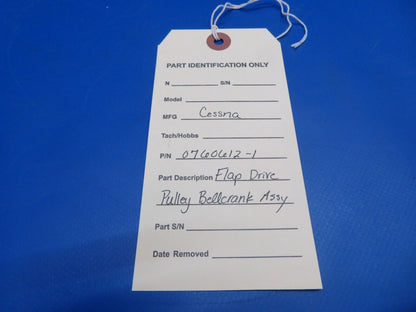 PART IDENTIFICATION ONLY
N S/N
Model
MFG Cessna
Tach/Hobbs
P/N 0760612-1
Part Description Flap Drive
Pulley Bellcrank Assy
Part S/N
Date Removed